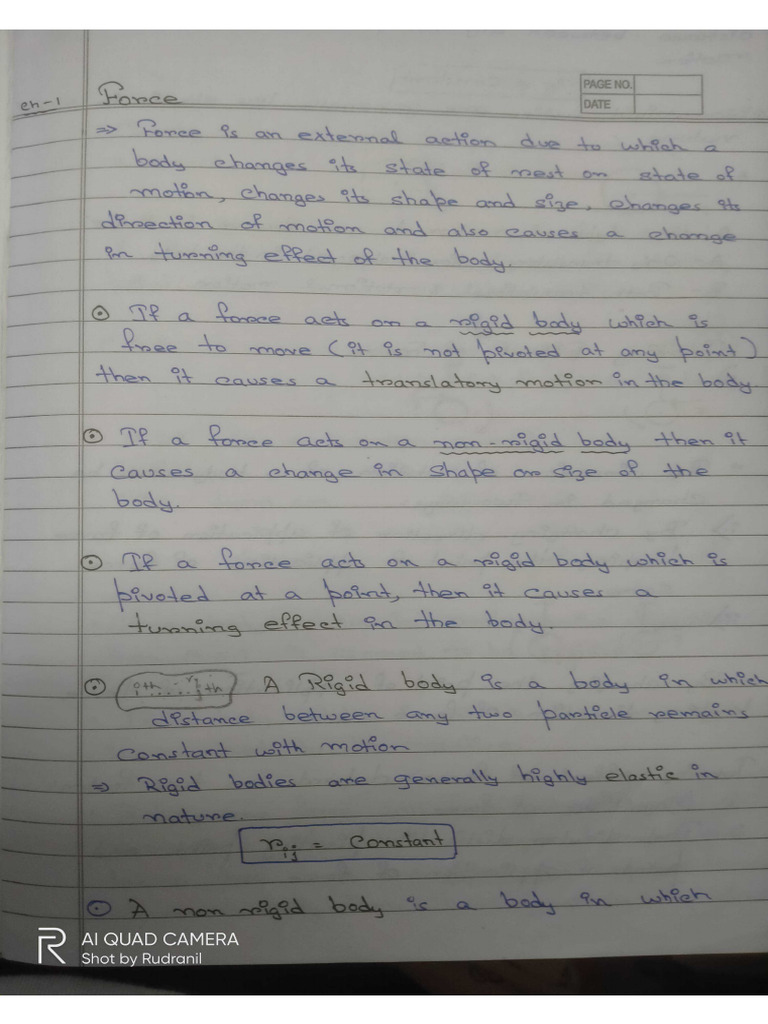 PAGE NO.
DATE
ch-1 Force
⇒ Force is an external action due to which a
body changes its state of rest or state of
motion, changes its shape and size, changes its
direction of motion and also causes a change
in turning effect of the body.
⊙ If a force acts on a rigid body which is
free to move (it is not pivoted at any point)
then it causes a translatory motion in the body
⊙ If a force acts on a non-rigid body then it
causes a change in shape or size of the
body.
⊙ If a force acts on a rigid body which is
pivoted at a point, then it causes a
turning effect in the body.
⊙ A Rigid body is a body in which
distance between any two particle remains
constant with motion
⇒ Rigid bodies are generally highly elastic in
nature.
rij = constant
⊙ A non rigid body is a body in which
R AI QUAD CAMERA
Shot by Rudranil